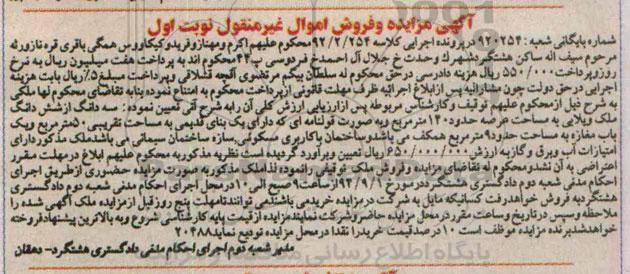 آگهی مزایده وفروش اموال غیرمنقول نوبت اول
شماره بایگانی شعبه: ۹۲۰۲۵۴ درپرونده اجرایی کلاسه ۹۲/۲/۲۵۴ محکوم علیهم اکرم ومهناز وفریدو کیکاووس همگی باقری قره نازورثه
مرحوم سیف اله ساکن هشتگردشهرک وحدت خ جلال آل احمدخ فردوسی پ۴۴محکوم اند به پرداخت هفت میلیون ریال به نرخ
روزوپرداخت۵۵۰/۰۰۰ ریال هزینه دادرسی درحق محکوم له سلطان بیگم مرتضوی آلوجه قشلاقی وپرداخت مبلغ۵٪ریال بابت هزینه
اجرایی درحق دولت چون مشارالیه پس ازابلاغ اجرائیه ظرف مهلت قانونی ازپرداخت محکوم به امتناع نموده بنابه تقاضای محکوم لها ملکی
به شرح ذیل ازمحکوم علیهم توقیف وکارشناس مربوطه پس ازارزیابی ارزش کلی آن رابه شرح آتی تعیین نموده: سه دانگ ازشش دانگ
ملک ویلایی به مساحت عرصه حدود۱۴۰مترمربع وبه صورت قولنامه ای که دارای یک بنای قدیمی به مساحت تقریبی۵۰مترمربع ویک
باب مغازه به مساحت حدود۹مترمربع همکف می باشدوساختمان باکاربری مسکونی,سازه ساختمان سیمانی می باشدملک مذکوردارای
امتیازات آب وبرق وگازبه ارزش۶۵۰/۰۰۰/۰۰۰ ریال تعیین وبرآورد گردیده است نظریه مذکوربه محکوم علیهم ابلاغ درمهلت مقرر
اعتراضی به آن نشدومحکوم له تقاضای مزایده وفروش ملک توقیفی رانموده لذاملک مذکوربه صورت مزایده حضوری ازطریق اجرای
احکام مدنی شعبه دوم دادگستری هشتگرددرمورخ۹۳/۹/۱ ازساعت۹صبح الی۱۰درمحل اجرای احکام مدنی شعبه دوم دادگستری
هشتگردبه فروش خواهدرفت کسانیکه مایل به شرکت درمزایده خریدمی باشندمی توانندتامهلت پنج روزقبل ازمزایده ملک آگهی شده را
ملاحظه وسپس درتاریخ وساعت مقرردرمحل مزایده حاضروشرکت نمایندمزایده ازقیمت پایه کارشناسی شروع وبه بالاترین پیشنهادفروخته
خواهدشدبرنده مزایده موظف است ۱۰درصدقیمت خریدرا نقدا درمحل مزایده تودیع نماید۲۰۴۸۸
مدیر شعبه دوم اجرای احکام مدنی دادگستری هشتگرد- دهقان